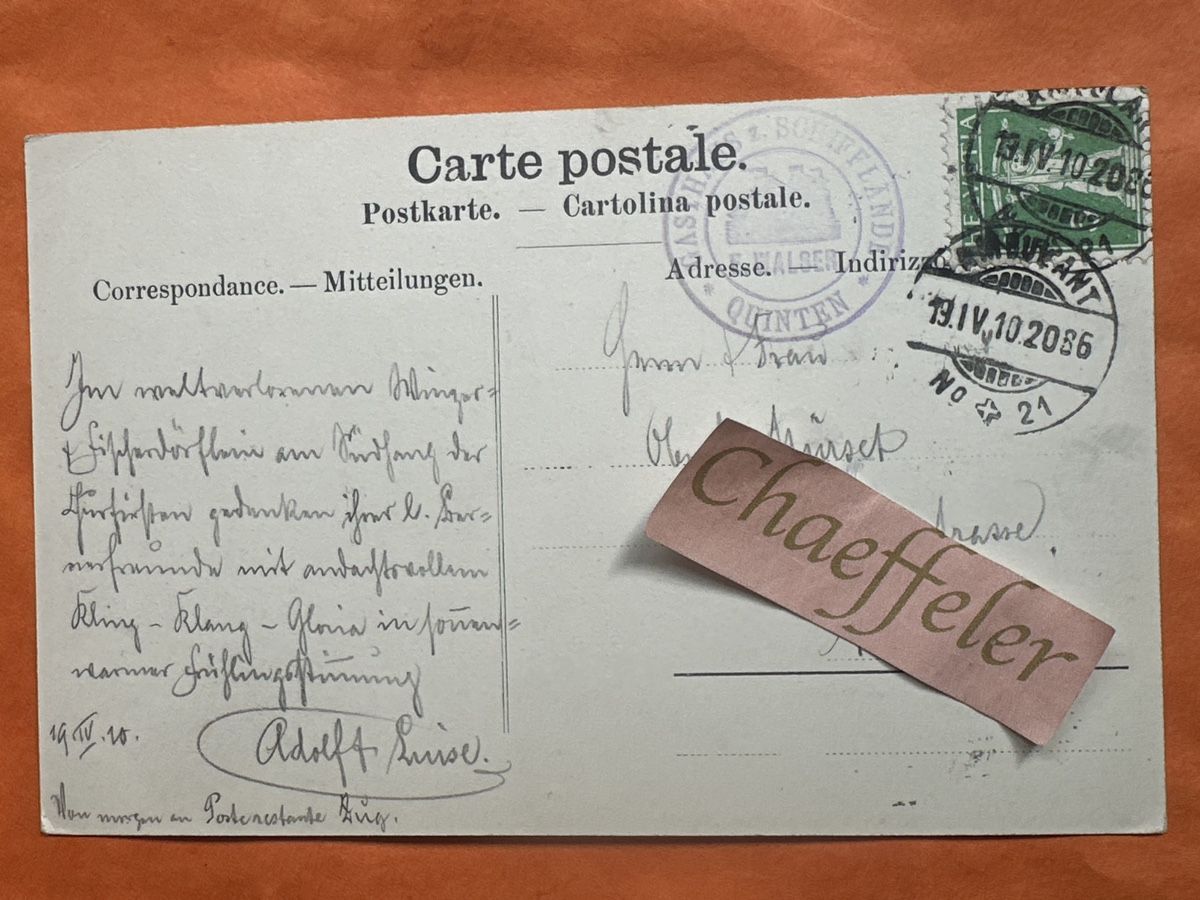 Carte postale.
Postkarte. — Cartolina postale.
Correspondance. — Mitteilungen.
Adresse. — Indirizzo
GASTHAUS z. SCHIFFLÄNDE
E. WALSER
* QUINTEN *
HELVETIA
AMBULANT
19.IV.10.20
No 21
AMBULANT
19.IV.10.20
No 21
Im weltverlorenen Winzer-
& Fischerdörflein am Südhang der
Churfirsten gedenken ihrer l. Ber-
nerfreunde mit andachtsvollem
Kling – Klang – Gloria in sonnen-
warmer Frühlingsstimmung
19 IV. 10.
Adolf & Luise.
Von morgen an Poste restante Zug.
Herrn & Frau
Mürset
strasse.
Chaeffeler